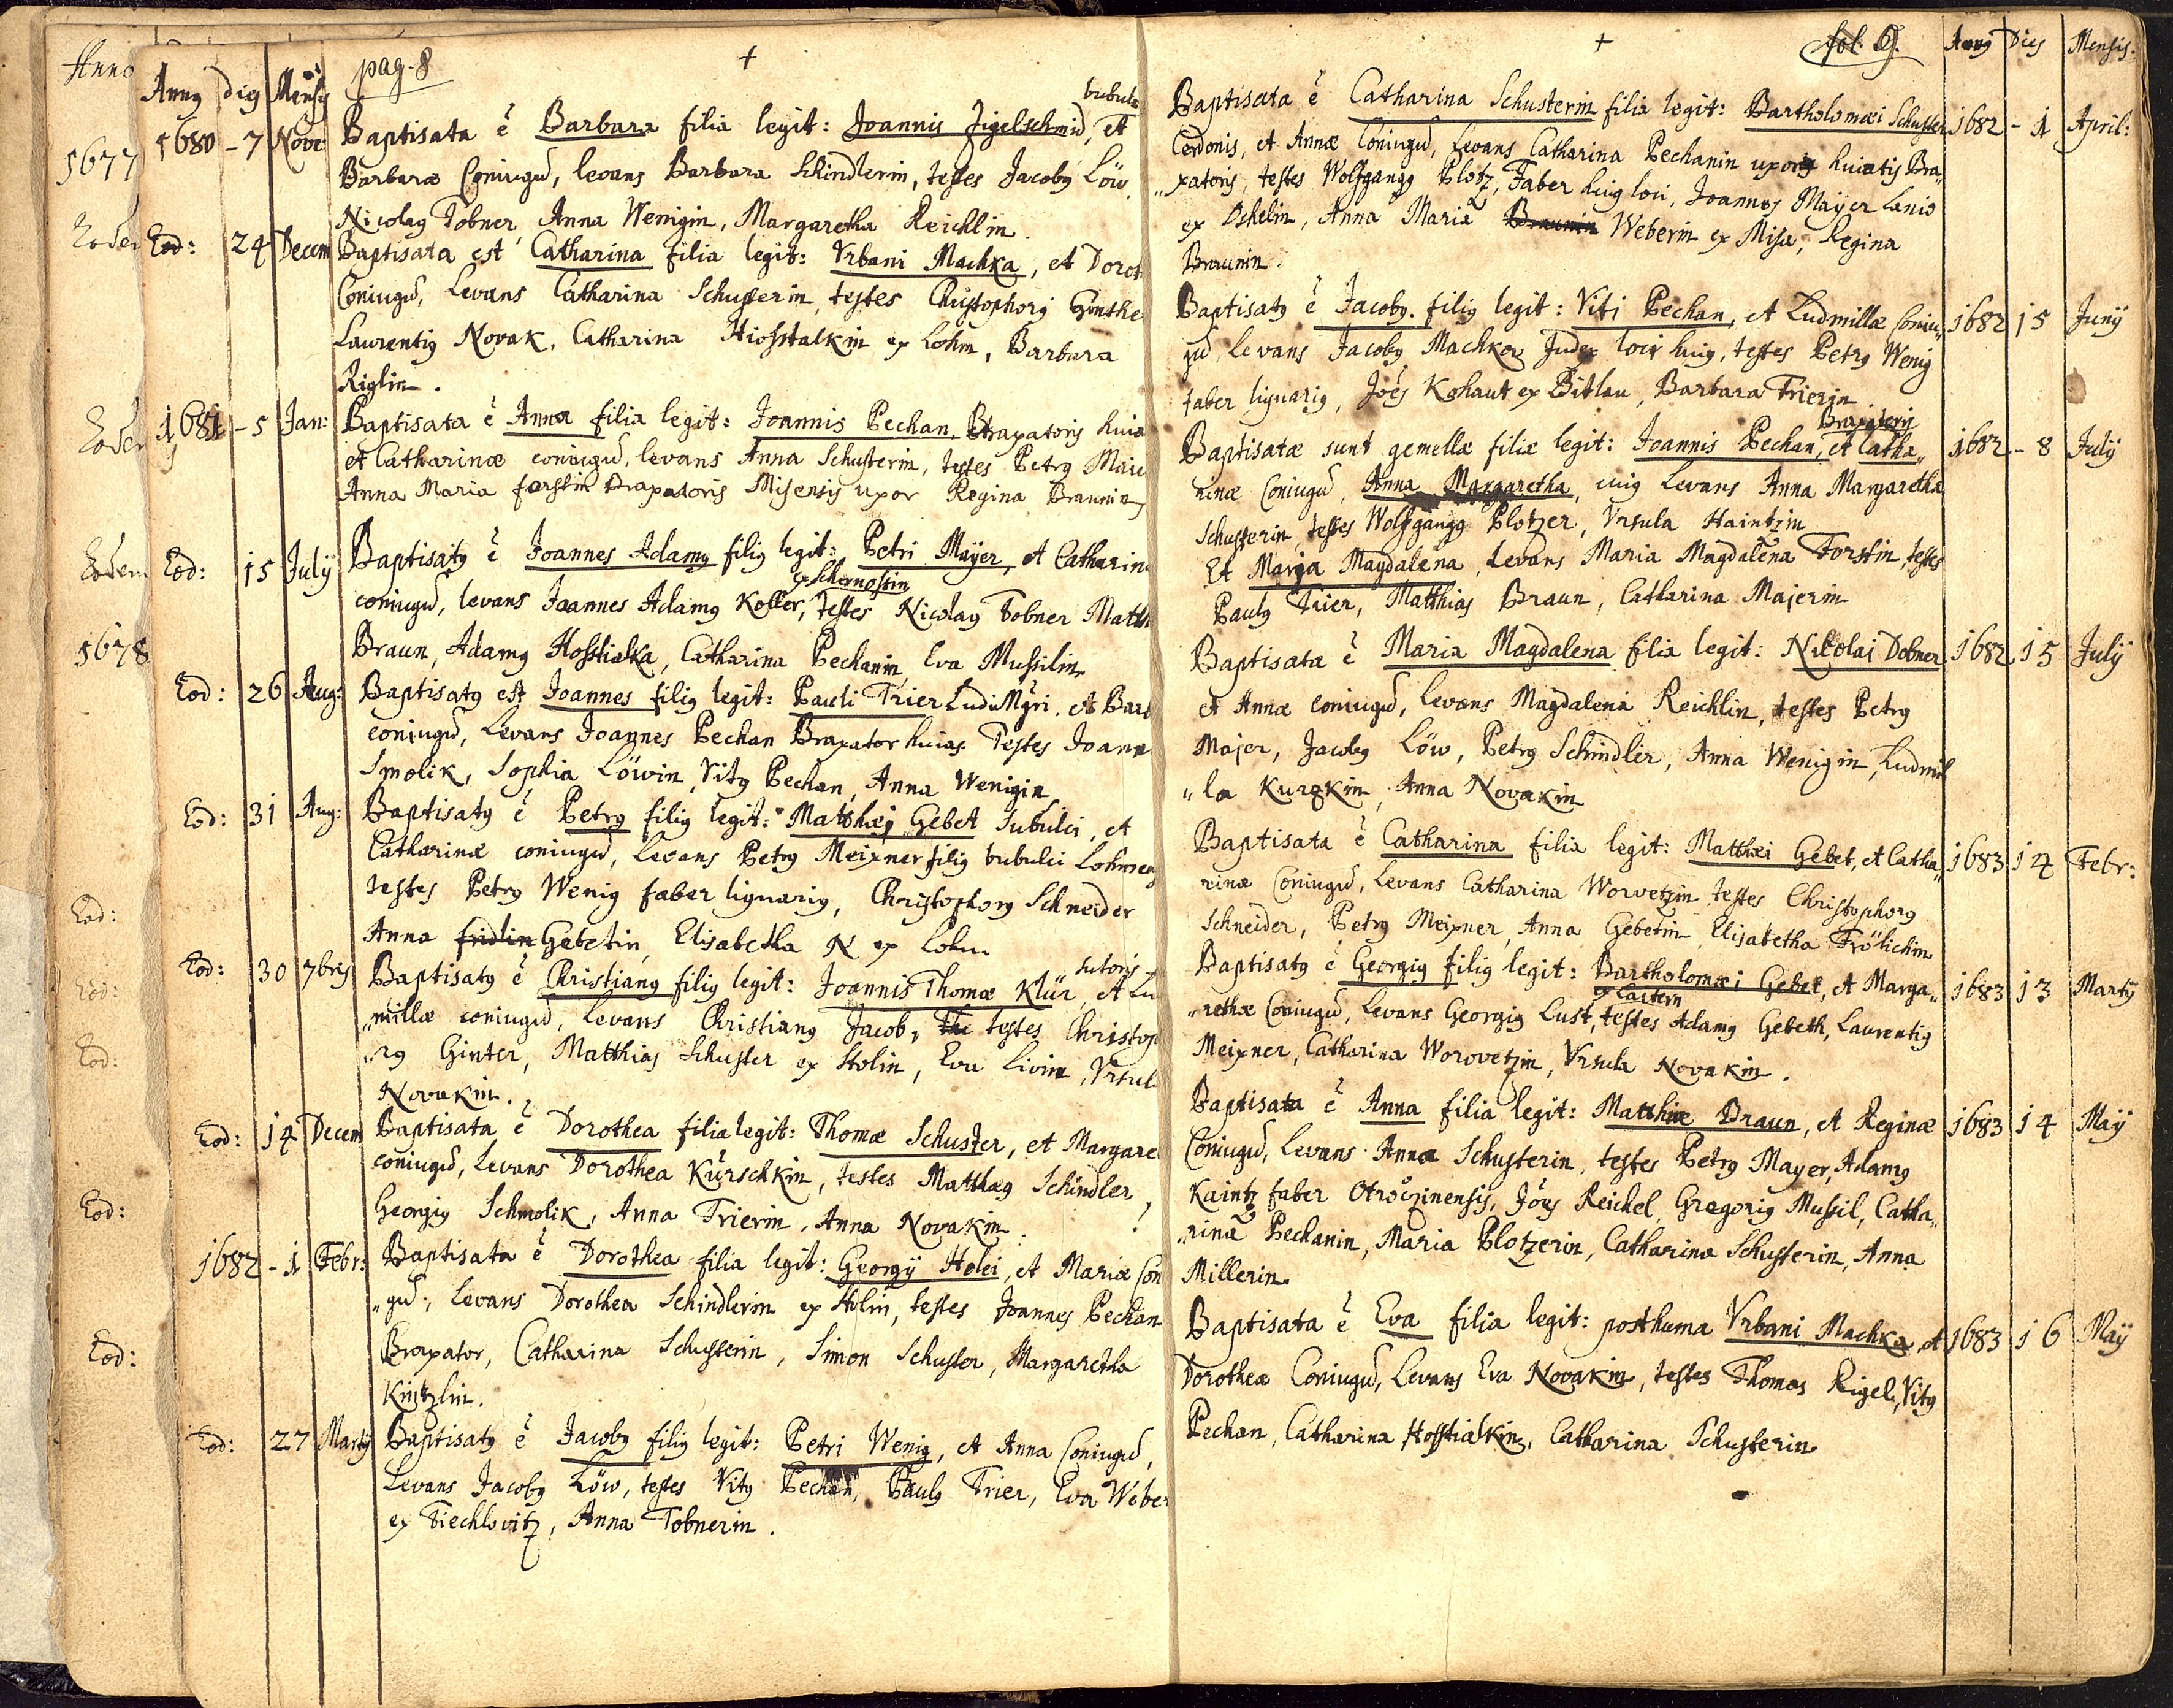 Anno
1677
Eoder
Eoder
Eodem
1678
Eod:
Eod:
Eod:
Eod:
Eod:
Annꝯ Dies Mensis pag. 8 +
bubulc
1680 - 7 Nove Baptisata ē Barbara filia legit: Joannis Zigelschmid, et
Barbaræ Coniugū, levans Barbara Schindlerin, testes Jacobꝯ Löw
Nicolaꝯ Tobner, Anna Wenigin, Margaretha Reichlin.
Eod: 24 Decem Baptisata est Catharina filia legit: Vrbani Machka, et Dorot
Coniugū, Levans Catharina Schusterin, testes Christophorꝯ Ginthe
Laurentiꝯ Novak, Catharina Hiosstalkin ex Lohm, Barbara
Riglin.
1681 - 5 Jan: Baptisata ē Anna filia legit: Joannis Pechan Braxatoris huia
et Catharinæ coniugū, levans Anna Schusterin, testes Petrꝯ Maie
Anna Maria forstin Braxatoris Misensis uxor Regina Braunin
Eod: 15 Julÿ Baptisatꝯ ē Joannes Adamꝯ filiꝯ legit: Petri Maÿer, et Catharin
ex Schernossin
coniugū, levans Joannes Adamꝯ Koller, testes Nicolaꝯ Tobner Matth
Braun, Adamꝯ Hosstialka, Catharina Pechanin, Eva Mussilin
Eod: 26 Aug: Baptisatꝯ est Joannes filiꝯ legit: Pauli Trier Ludi Mgri. et Barb
coniugū, Levans Joannes Pechan Braxator huias. Testes Joann
Smolik, Sophia Löwin, Vitꝯ Pechan, Anna Wenigin
Eod: 31 Aug: Baptisatꝯ ē Petrꝯ filiꝯ legit: Matthæi Gebet Subulci, et
Catharinæ coniugū, Levans Petrꝯ Meixner filiꝯ bubulci Lohmens
testes Petrꝯ Wenig faber lignariꝯ, Christophorꝯ Schneider
Anna fridlin Gebetin, Elisabetha N ex Lohm.
sutoris
Eod: 30 7bris Baptisatꝯ ē Christianꝯ filiꝯ legit: Joannis Thomæ Klür, et Lu
„millæ coniugū, Levans Christianꝯ Jacob, testes Christop
„rꝯ Ginter, Matthias Schuster ex Stolin, Eva Livin, Vrsul
Novakin.
Eod: 14 Decem Baptisata ē Dorothea filia legit: Thomæ Schuster, et Margare
coniugū, Levans Dorothea Kürschkin, testes Matthæꝯ Schindler,
Georgiꝯ Schmolik, Anna Trierin, Anna Novakin.
1682 - 1 Febr: Baptisata ē Dorothea filia legit: Georgÿ Holei, et Mariæ Con
„gū, Levans Dorothea Schindlerin ex Stolin, testes Joannes Pechan
Braxator, Catharina Schusterin, Simon Schuster, Margaretha
Kintzlin.
Eod: 27 Martÿ Baptisatꝯ ē Jacobꝯ filiꝯ legit: Petri Wenig, et Anna Coniugū,
Levans Jacobꝯ Löw, testes Vitꝯ Pechan, Paulꝯ Trier, Eva Weber
ex Tiechlovitz, Anna Tobnerin.
+ fol: 9. Annꝯ Dies Mensis:
Baptisata ē Catharina Schusterin filia legit: Bartholomæi Schuster 1682 - 1 April:
Cerdonis, et Annæ Coniugū, Levans Catharina Pechanin uxor huiatis Bra„
„xatoris, testes Wolfgangꝯ Plotz, Faber huiꝯ loci, Joannes Maÿer Lanio
ex Oschelin, Anna Maria Braunin Weberin ex Misa, Regina
Braunin.
Baptisatꝯ ē Jacobꝯ filiꝯ legit: Viti Pechan, et Ludmillæ Coniu„ 1682 15 Junÿ
gū Levans Jacobꝯ Machka Judex loci huiꝯ, testes Petrꝯ Wenig
faber lignariꝯ, Joēs Kohaut ex Pitlau, Barbara Trierin
Braxatoris
Baptisatæ sunt gemellæ filiæ legit: Joannis Pechan, et Catha„ 1682 - 8 Julÿ
rinæ Coniugū, Anna Margaretha, cuiꝯ Levans Anna Margaretha
Schusterin, testes Wolfgangꝯ Plotzer, Vrsula Haintzin
Et Maria Magdalena, Levans Maria Magdalena Forstin, testes
Paulꝯ Trier, Matthias Braun, Catharina Majerin
Baptisata ē Maria Magdalena filia legit: Nikolai Dobner 1682 15 Julÿ
et Annæ coniugū, levans Magdalena Reichlin, testes Petrꝯ
Majer, Jacobꝯ Löw, Petrꝯ Schindler, Anna Wenigin, Ludmil
„la Kurzkin, Anna Novakin
Baptisata ē Catharina filia legit: Matthæi Gebet, et Catha„ 1683 14 Febr:
rinæ Coniugū, Levans Catharina Worvetzin, testes Christophorꝯ
Schneider, Petrꝯ Meixner, Anna Gebetin, Elisabetha Frölichin
Baptisatꝯ ē Georgiꝯ filiꝯ legit: Bartholomæi Gebet, et Marga„ 1683 13 Martÿ
„rethæ Coniugū, Levans Georgiꝯ Lust, testes Adamꝯ Gebeth, Laurentiꝯ
Meixner, Catharina Worovetzin, Vrsula Novakin.
Baptisata ē Anna filia legit: Matthiæ Braun, et Reginæ 1683 14 Maÿ
Coniugū, Levans Anna Schusterin, testes Petrꝯ Mayer, Adamꝯ
Kaintz faber Otroczinensis, Joēs Reichel, Gregoriꝯ Mussil, Catha„
„rina Pechanin, Maria Plotzerin, Catharina Schusterin, Anna
Millerin.
Baptisata ē Eva filia legit: posthuma Vrbani Machka, et 1683 16 Maÿ
Dorotheæ Coniugū, Levans Eva Novakin, testes Thomas Rigel, Vitꝯ
Pechan, Catharina Hosstialkin, Catharina Schusterin